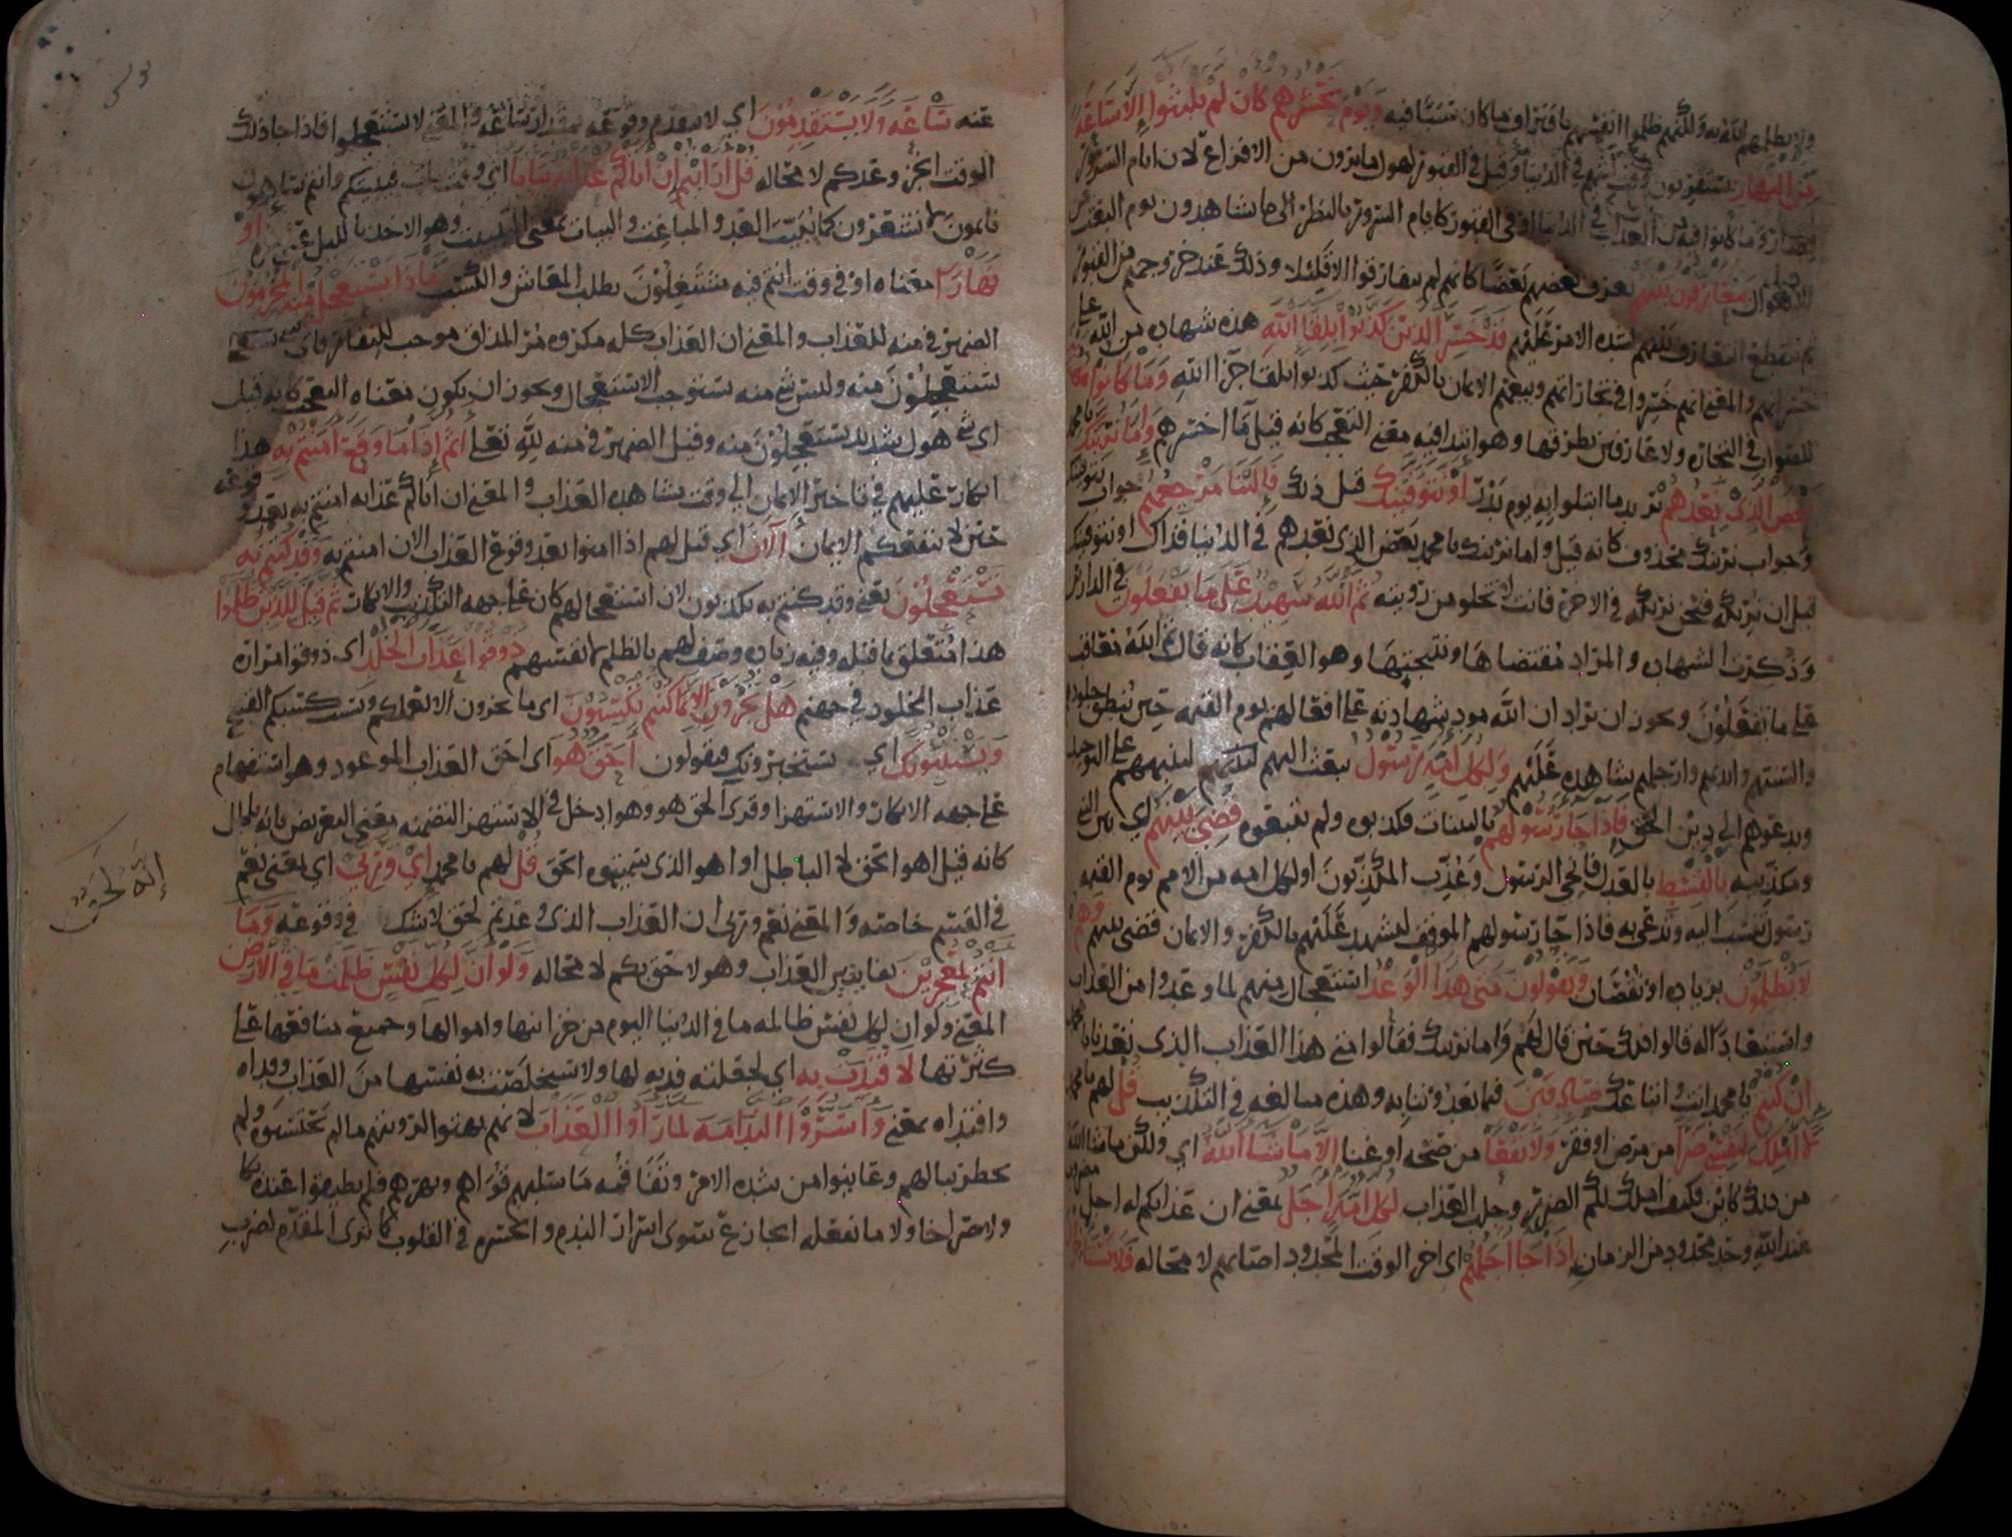 ولا يظلمهم الله به ولكنهم ظلموا انفسهم باقتراف ما كان سببا فيه ويوم نحشرهم كان لم يلبثوا الا ساعة
من النهار يستقربون وقت لبثهم في الدنيا وقيل في القبور لهول ما يرون من الافزاع لان ايام السرور
قصار وما كانوا فيه من العذاب في الدنيا او في القبور كايام السرور بالنظر الى ما يشاهدون يوم البعث من
الاهوال يتعارفون بينهم يعرف بعضهم بعضا كانهم لم يتفارقوا الا قليلا وذلك عند خروجهم من القبور
ثم ينقطع التعارف بينهم لشده الامر عليهم قد خسر الذين كذبوا بلقا الله هذه شهاده من الله على
خسرانهم والمعنى انهم خسروا في تجاراتهم وبيعهم الايمان بالكفر حيث كذبوا بلقا جزا الله وما كانوا مهتدين
للصواب في التجاره ولا عارفين بطرقها وهو ابتدا فيه معنى التعجب كانه قيل ما اخسرهم واما نرينك يا محمد
بعض الذي نعدهم نريد ما ابتلوا به يوم بدر او نتوفينك قبل ذلك فالينا مرجعهم جواب نتوفينك
وجواب نرينك محذوف كانه قيل واما نرينك يا محمد بعض الذي نعدهم في الدنيا فذاك او نتوفينك
قبل ان نريكه فنحن نريكه في الاخرة فانت لا تخلو من رويته ثم الله شهيد على ما يفعلون في الدارين
وذكرت الشهاده والمراد مقتضاها ونتيجتها وهو العقاب كانه قال ثم الله معاقب
على ما يفعلون ويجوز ان يراد ان الله مود شهادته على افعالهم يوم القيمه حين ينطق جلودهم
والسنتهم وايديهم وارجلهم شاهده عليهم ولكل امة رسول يبعث اليهم لينبههم على التوحيد
ويدعوهم الى دين الحق فاذا جا رسولهم بالبينات فكذبوه ولم يتبعوه قضي بينهم اي بين النبي
ومكذبيه بالقسط بالعدل فانجي الرسول وعذب المكذبون او لكل امه من الامم يوم القيمه
رسول تنسب اليه وتدعى به فاذا جا رسولهم الموقف ليشهد عليهم بالكفر والايمان قضي بينهم وهم
لا يظلمون بزياده او نقصان ويقولون متى هذا الوعد استعجال منهم لما وعدوا من العذاب
واستبعاد له قالوا ذلك حين قال لهم واما نرينك فقالوا متى هذا العذاب الذي تعدنا يا محمد
ان كنتم يا محمد انت واتباعك صادقين فيما تعدوننا به وهذه مبالغه في التكذيب قل لهم يا محمد
لا املك لنفسي ضرا من مرض او فقر ولا نفعا من صحه او غنا الا ما شا الله اي ولكن ما شا الله
من ذلك كاين فكيف املك لكم الضرر وجلب العذاب لكل امة اجل يعني ان عذابكم له اجل مضروب
عند الله وحد محدود من الزمان اذا جا اجلهم اي اخر الوقت المحدود اصابهم لا محاله فلا يستاخرون
عنه ساعة ولا يستقدمون اي لا يتقدم وقوعه مقدار ساعه والمعنى لا تستعجلوا فاذا جا ذلك
الوقت انجز وعدكم لا محاله قل ارايتم ان اتاكم عذابه بياتا اي وقت بيات فبيتكم وانتم ساهون
نايمون لا تشعرون كما يبيت العدو المباغت والبيات بمعنى التبييت وهو الاخذ بالليل او
نهارا معناه او في وقت انتم فيه مشتغلون بطلب المعاش والكسب ماذا يستعجل منه المجرمون
الضمير في منه للعذاب والمعنى ان العذاب كله مكروه مر المذاق موجب للنفار فاي شي
تستعجلون منه وليس شي منه يستوجب الاستعجال ويجوز ان يكون معناه التعجب كانه قيل
اي شي هول شديد تستعجلون منه وقيل الضمير في منه لله تعلى اثم اذا ما وقع امنتم به هذا
انكار عليهم في تاخير الايمان الى وقت مشاهده العذاب والمعنى ان اتاكم عذابه امنتم به بعد وقوعه
حين لا ينفعكم الايمان الان اي قيل لهم اذا امنوا بعد وقوع العذاب الان امنتم به وقد كنتم به
تستعجلون يعني وقد كنتم به تكذبون لان استعجالهم كان على جهه التكذيب والانكار ثم قيل للذين ظلموا
هذا متعلق بما قبله وفيه زياده وصف لهم بالظلم لانفسهم ذوقوا عذاب الخلد اي ذوقوا مراره
عذاب الخلود في جهنم هل تجزون الا بما كنتم تكسبون اي ما تجزون الا بعملكم وكسبكم القبيح
ويستنبئونك اي يستخبرونك فيقولون احق هو اي احق العذاب الموعود وهو استفهام
على جهه الانكار والاستهزا وقرى الحق هو وهو ادخل في الاستهزا لتضمنه معنى التعريض بانه باطل
كانه قيل اهو الحق لا الباطل او اهو الذي سميتموه الحق قل لهم يا محمد اي وربي اي بمعنى نعم
في القسم خاصه والمعنى نعم وربي ان العذاب الذي وعدتم لحق لا شك في وقوعه وما
انتم بمعجزين بفايتين العذاب وهو لاحق بكم لا محاله ولو ان لكل نفس ظلمت ما في الارض
المعنى ولو ان لكل نفس ظالمه ما في الدنيا اليوم من خزاينها واموالها وجميع منافعها على
كثرتها لافتدت به اي لجعلته فديه لها ولاستخلصت به نفسها من العذاب وفداه
وافتداه بمعنى واسروا الندامة لما راوا العذاب لانهم بهتوا لرويتهم ما لم يحتسبوه ولم
يخطر ببالهم وعاينوا من شده الامر وتفاقمه ما سلبهم قواهم وبهرهم فلم يطيقوا عنده بكا
ولا صراخا ولا ما يفعله الجازع سوى اسرار الندم والحسره في القلوب كما ترى المقدم لضرب
انه لحق